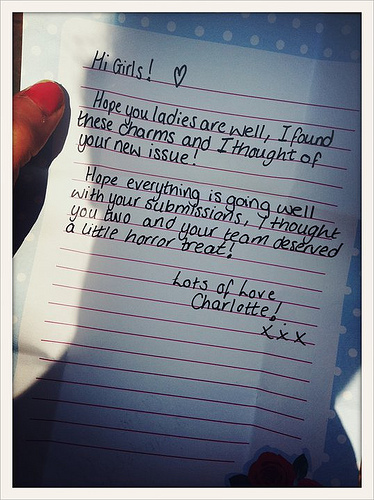 Hi Girls! ♡
Hope you ladies are well, I found
these charms and I thought of
your new issue!
Hope everything is going well
with your submissions, I thought
you two and your team deserved
a little horror treat!
Lots of Love
Charlotte!
xxx